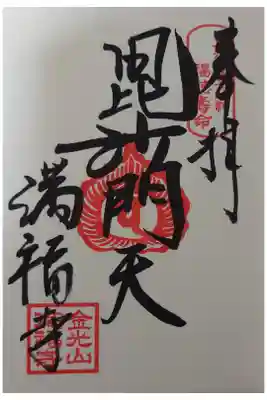 奉拝
毘沙門天
満福寺
金光山
満福寺